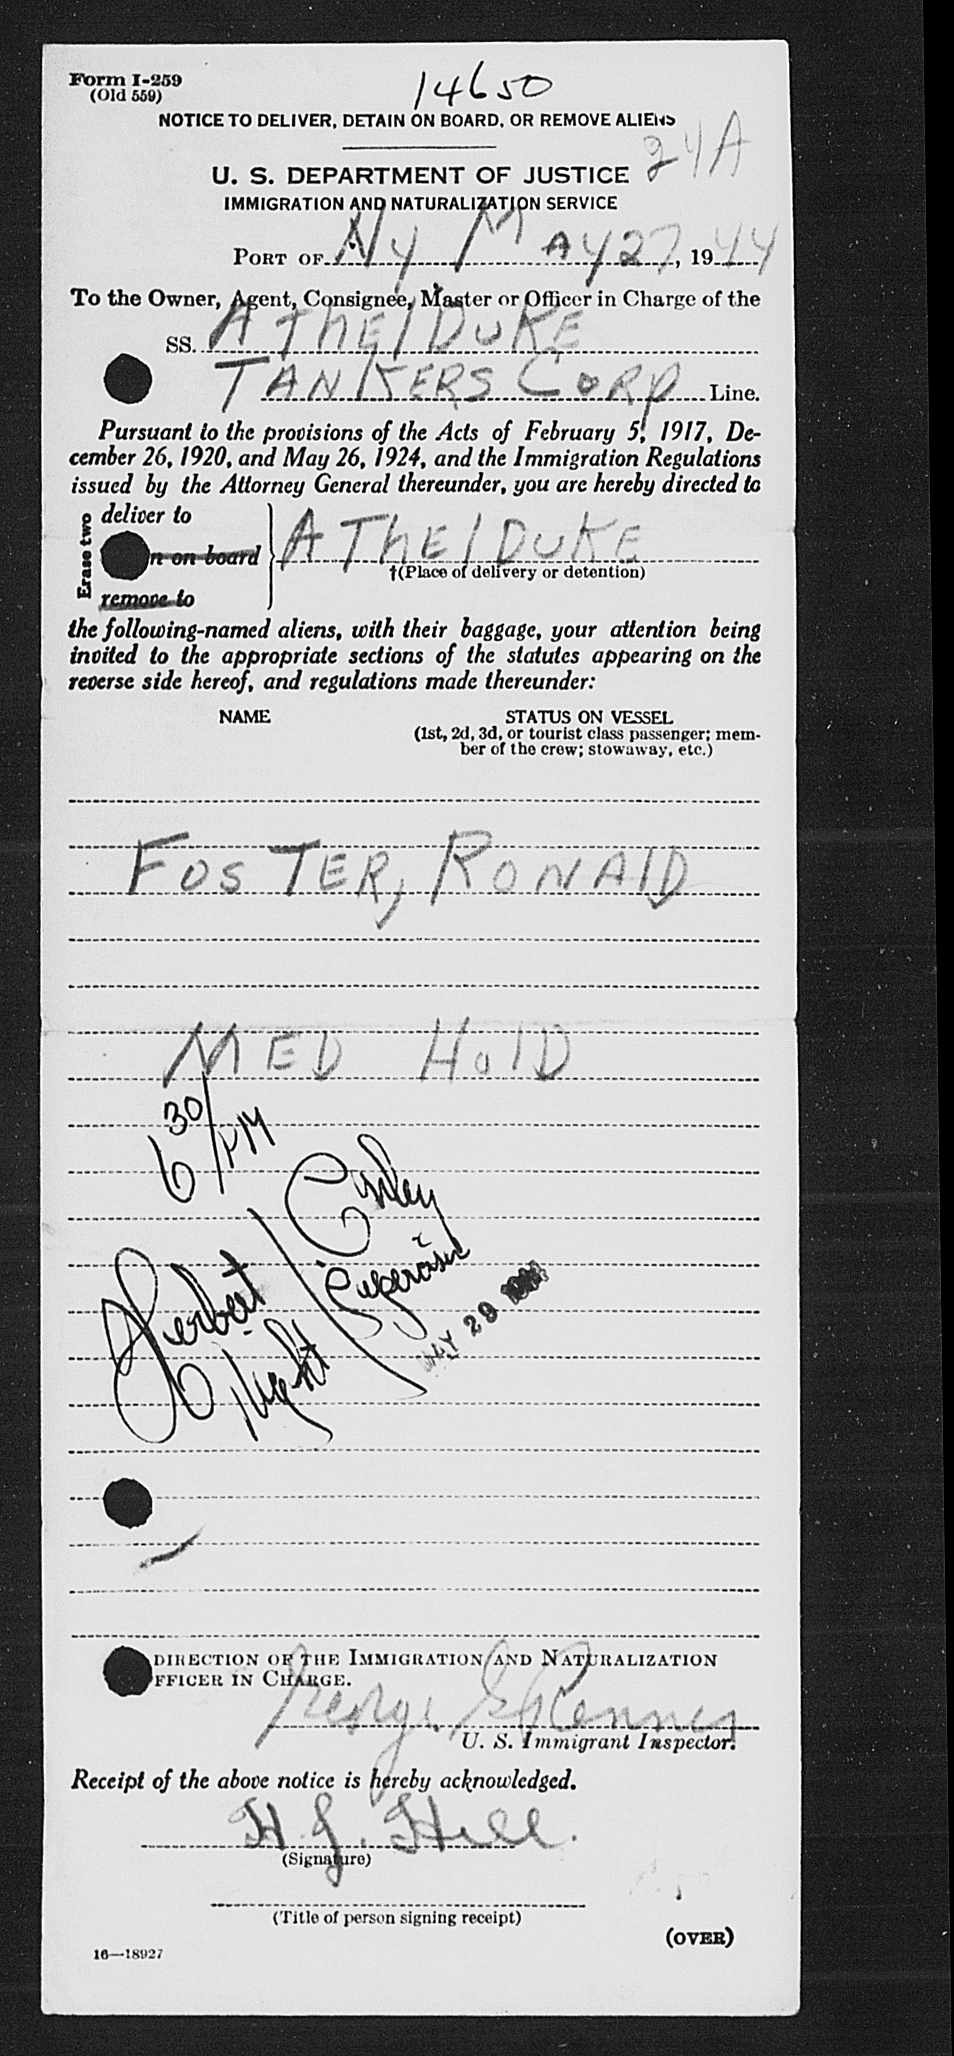 Form I-259
(Old 559)
14650
NOTICE TO DELIVER, DETAIN ON BOARD, OR REMOVE ALIENS
24A
U. S. DEPARTMENT OF JUSTICE
IMMIGRATION AND NATURALIZATION SERVICE
PORT OF NY MAY 27, 1944
To the Owner, Agent, Consignee, Master or Officer in Charge of the
SS. AThelDuKE
TANKERS CORP Line.
Pursuant to the provisions of the Acts of February 5, 1917, De-
cember 26, 1920, and May 26, 1924, and the Immigration Regulations
issued by the Attorney General thereunder, you are hereby directed to
Erase two
deliver to
n on board
remove to
AThElDuKE
†(Place of delivery or detention)
the following-named aliens, with their baggage, your attention being
invited to the appropriate sections of the statutes appearing on the
reverse side hereof, and regulations made thereunder:
NAME
STATUS ON VESSEL
(1st, 2d, 3d, or tourist class passenger; mem-
ber of the crew; stowaway, etc.)
FOSTER, RONAlD
MED HOlD
6 30/PM
Herbert Conley
Night Supervisor
MAY 29 1944
DIRECTION OF THE IMMIGRATION AND NATURALIZATION
FFICER IN CHARGE.
George
U. S. Immigrant Inspector.
Receipt of the above notice is hereby acknowledged.
H. J. Hill.
(Signature)
(Title of person signing receipt)
(OVER)
16—18927